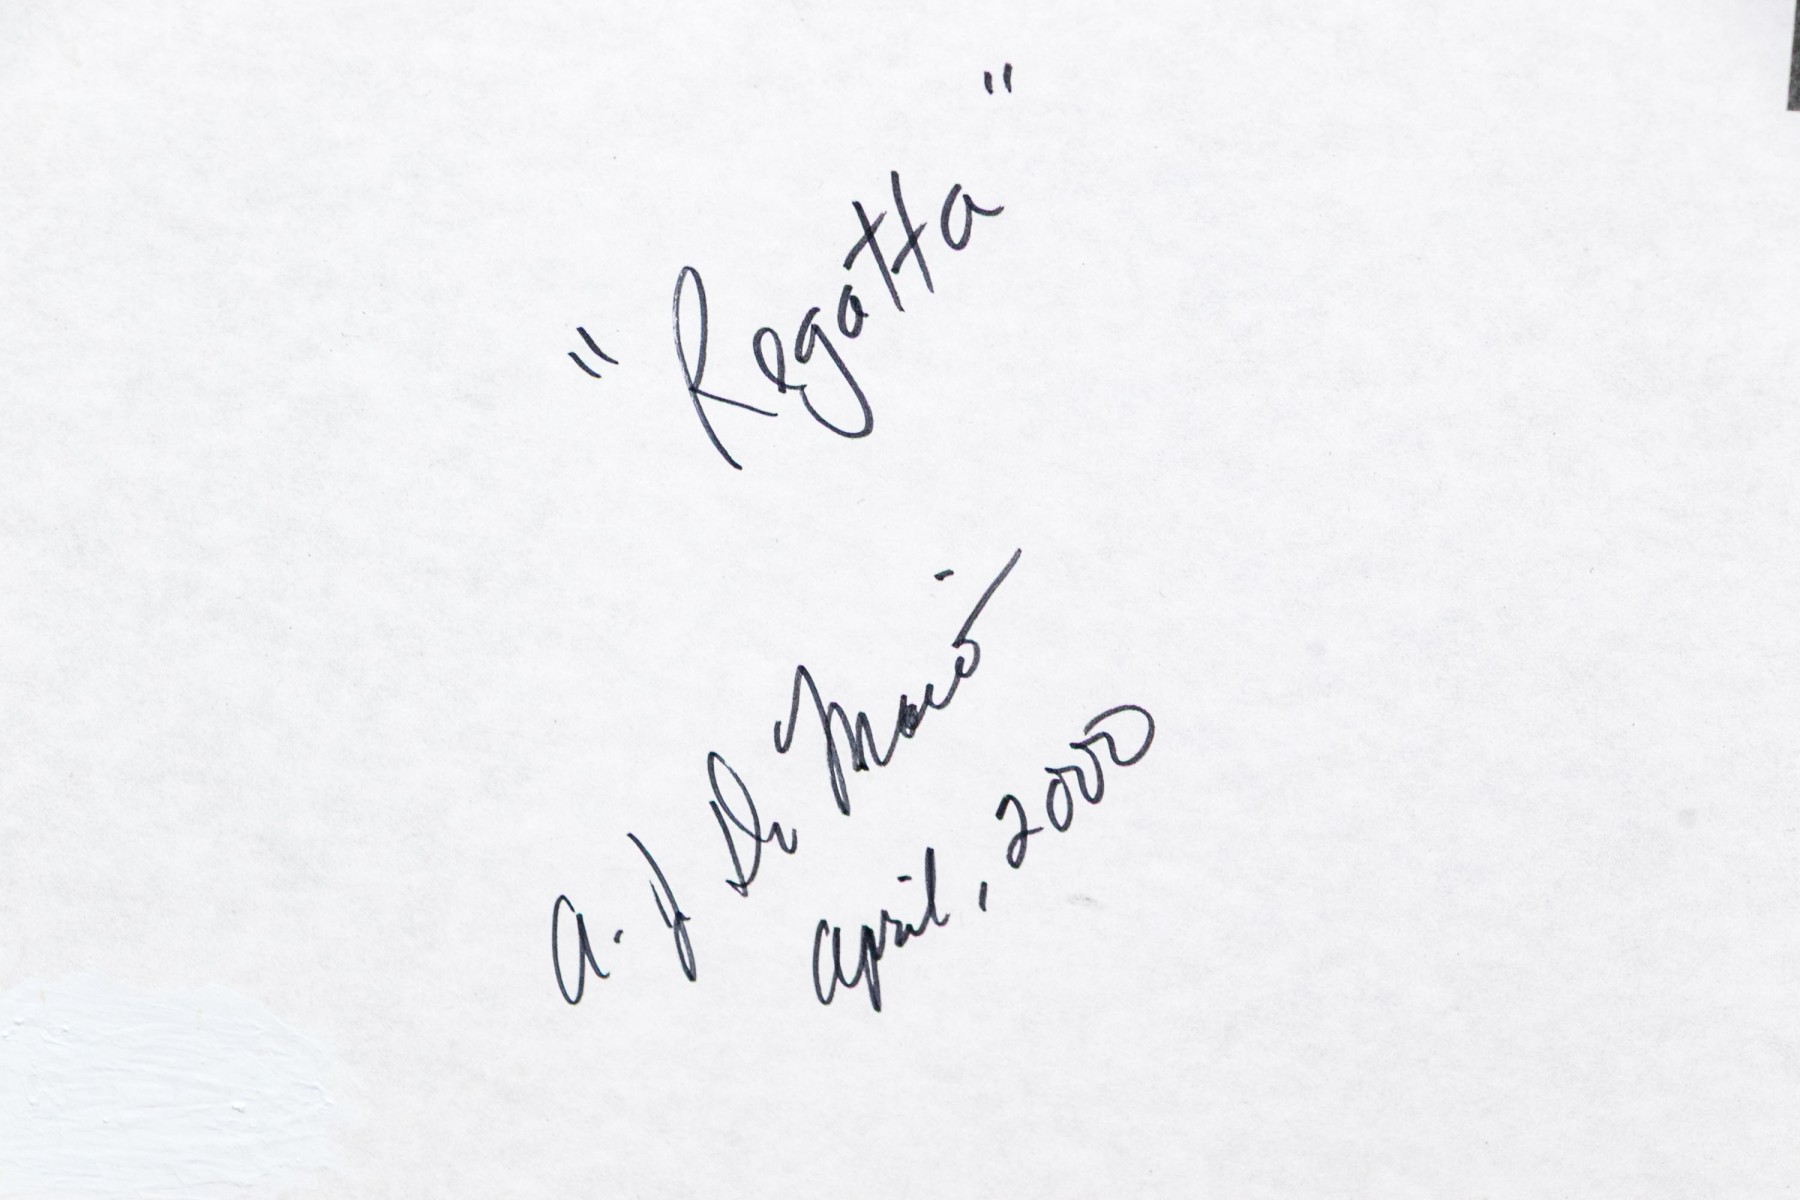 "Regatta"
A. J. De Maio
April, 2000